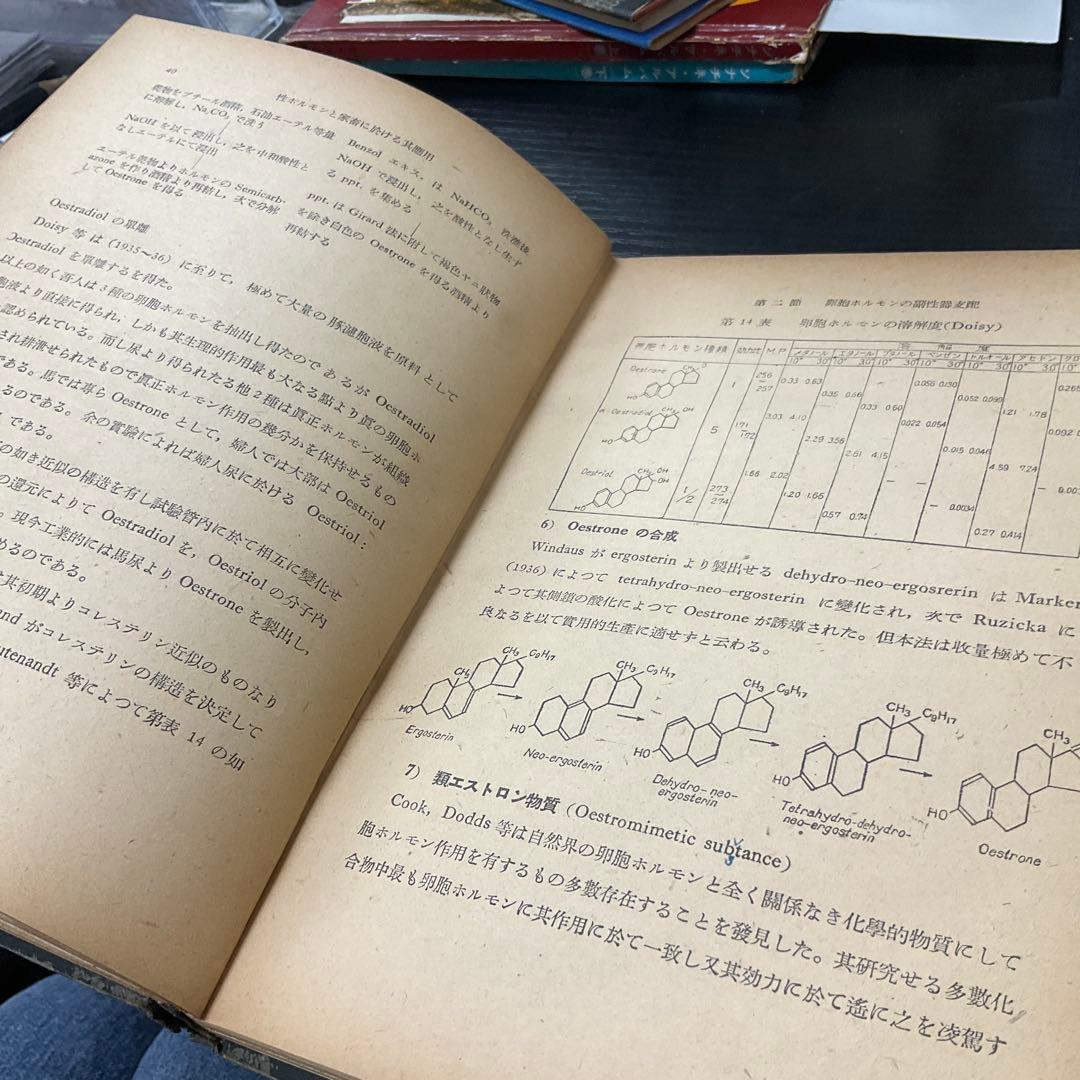 ソナチネ・アルバム
ソナチネ・アルバム 下
40
性ホルモンと家畜に於ける其應用
乾物をブチール酒精,石油エーテル等量
に溶解し,Na₂CO₃ で洗う
NaOH を以て浸出し,之を中和酸性と
なしエーテルにて浸出
エーテル乾物よりホルモンの Semicarb-
azone を作り酒精より再結し,次で分解
して Oestrone を得る
Benzol エキス,は NaHCO₃ 洗滌後
NaOH で浸出し,之を酸性となし生ず
る ppt. を集める
ppt. は Girard 法に附して褐色ヤニ狀物
を除き白色の Oestrone を得る酒精より
再結する
Oestradiol の單離
Doisy 等は (1935〜36) に至りて, 極めて大量の豚濾胞液を原料として
Oestradiol を單離するを得た。
以上の如く吾人は3種の卵胞ホルモンを抽出し得たのであるが Oestradiol
胞液より直接に得られ,しかも其生理的作用最も大なる點より眞の卵胞ホ
認められている。而し尿より得られたる他2種は眞正ホルモンが組織
され排泄せられたもので眞正ホルモン作用の幾分かを保持せるもの
である。馬では專ら Oestrone として,婦人では大部は Oestriol
るのである。余の實驗によれば婦人尿に於ける Oestriol:
である。
の如き近似の構造を有し試驗管内に於て相互に變化せ
の還元によりて Oestradiol を, Oestriol の分子内
。現今工業的には馬尿より Oestrone を製出し,
めるのである。
其初期よりコレステリン近似のものなり
and がコレステリンの構造を決定して
utenandt 等によつて第表 14 の如
第二節 卵胞ホルモンの副性器支配
第14表 卵胞ホルモンの溶解度(Doisy)
卵胞ホルモン種類 効力比 M.P. 溶解度
メタノール エタノール ブタノール ベンゼン トルオール アセトン クロ
10° 30° 10° 30° 10° 30° 10° 30° 10° 30° 10° 30° 10°
Oestrone 1 256 257 0.33 0.63 0.35 0.66 0.33 0.60 0.056 0.130 0.052 0.099 1.21 1.78 0.265
Oestradiol 5 171 172 3.03 4.10 2.29 3.56 2.61 4.15 0.022 0.054 0.015 0.046 4.59 7.24
CH₃ OH
HO
Oestriol 1/2 273 274 1.66 2.02 1.20 1.66 0.57 0.74 — — — 0.0034 0.27 0.414
CH₃ OH
OH
HO
6) Oestrone の合成
Windaus が ergosterin より製出せる dehydro-neo-ergosrerin は Marker
(1936) によつて tetrahydro-neo-ergosterin に變化され,次で Ruzicka に
よつて其側鎖の酸化によつて Oestrone が誘導された。但本法は收量極めて不
良なるを以て實用的生產に適せずと云わる。
CH₃ C₉H₁₇
CH₃
HO
Ergosterin
CH₃ C₉H₁₇
HO
Neo-ergosterin
CH₃ C₉H₁₇
HO
Dehydro-neo-
ergosterin
CH₃ C₉H₁₇
HO
Tetrahydro-dehydro-
neo-ergosterin
CH₃
HO
Oestrone
7) 類エストロン物質 (Oestromimetic substance)
Cook, Dodds 等は自然界の卵胞ホルモンと全く關係なき化學的物質にして
胞ホルモン作用を有するもの多數存在することを發見した。其研究せる多數化
合物中最も卵胞ホルモンに其作用に於て一致し又其効力に於て遙に之を凌駕す